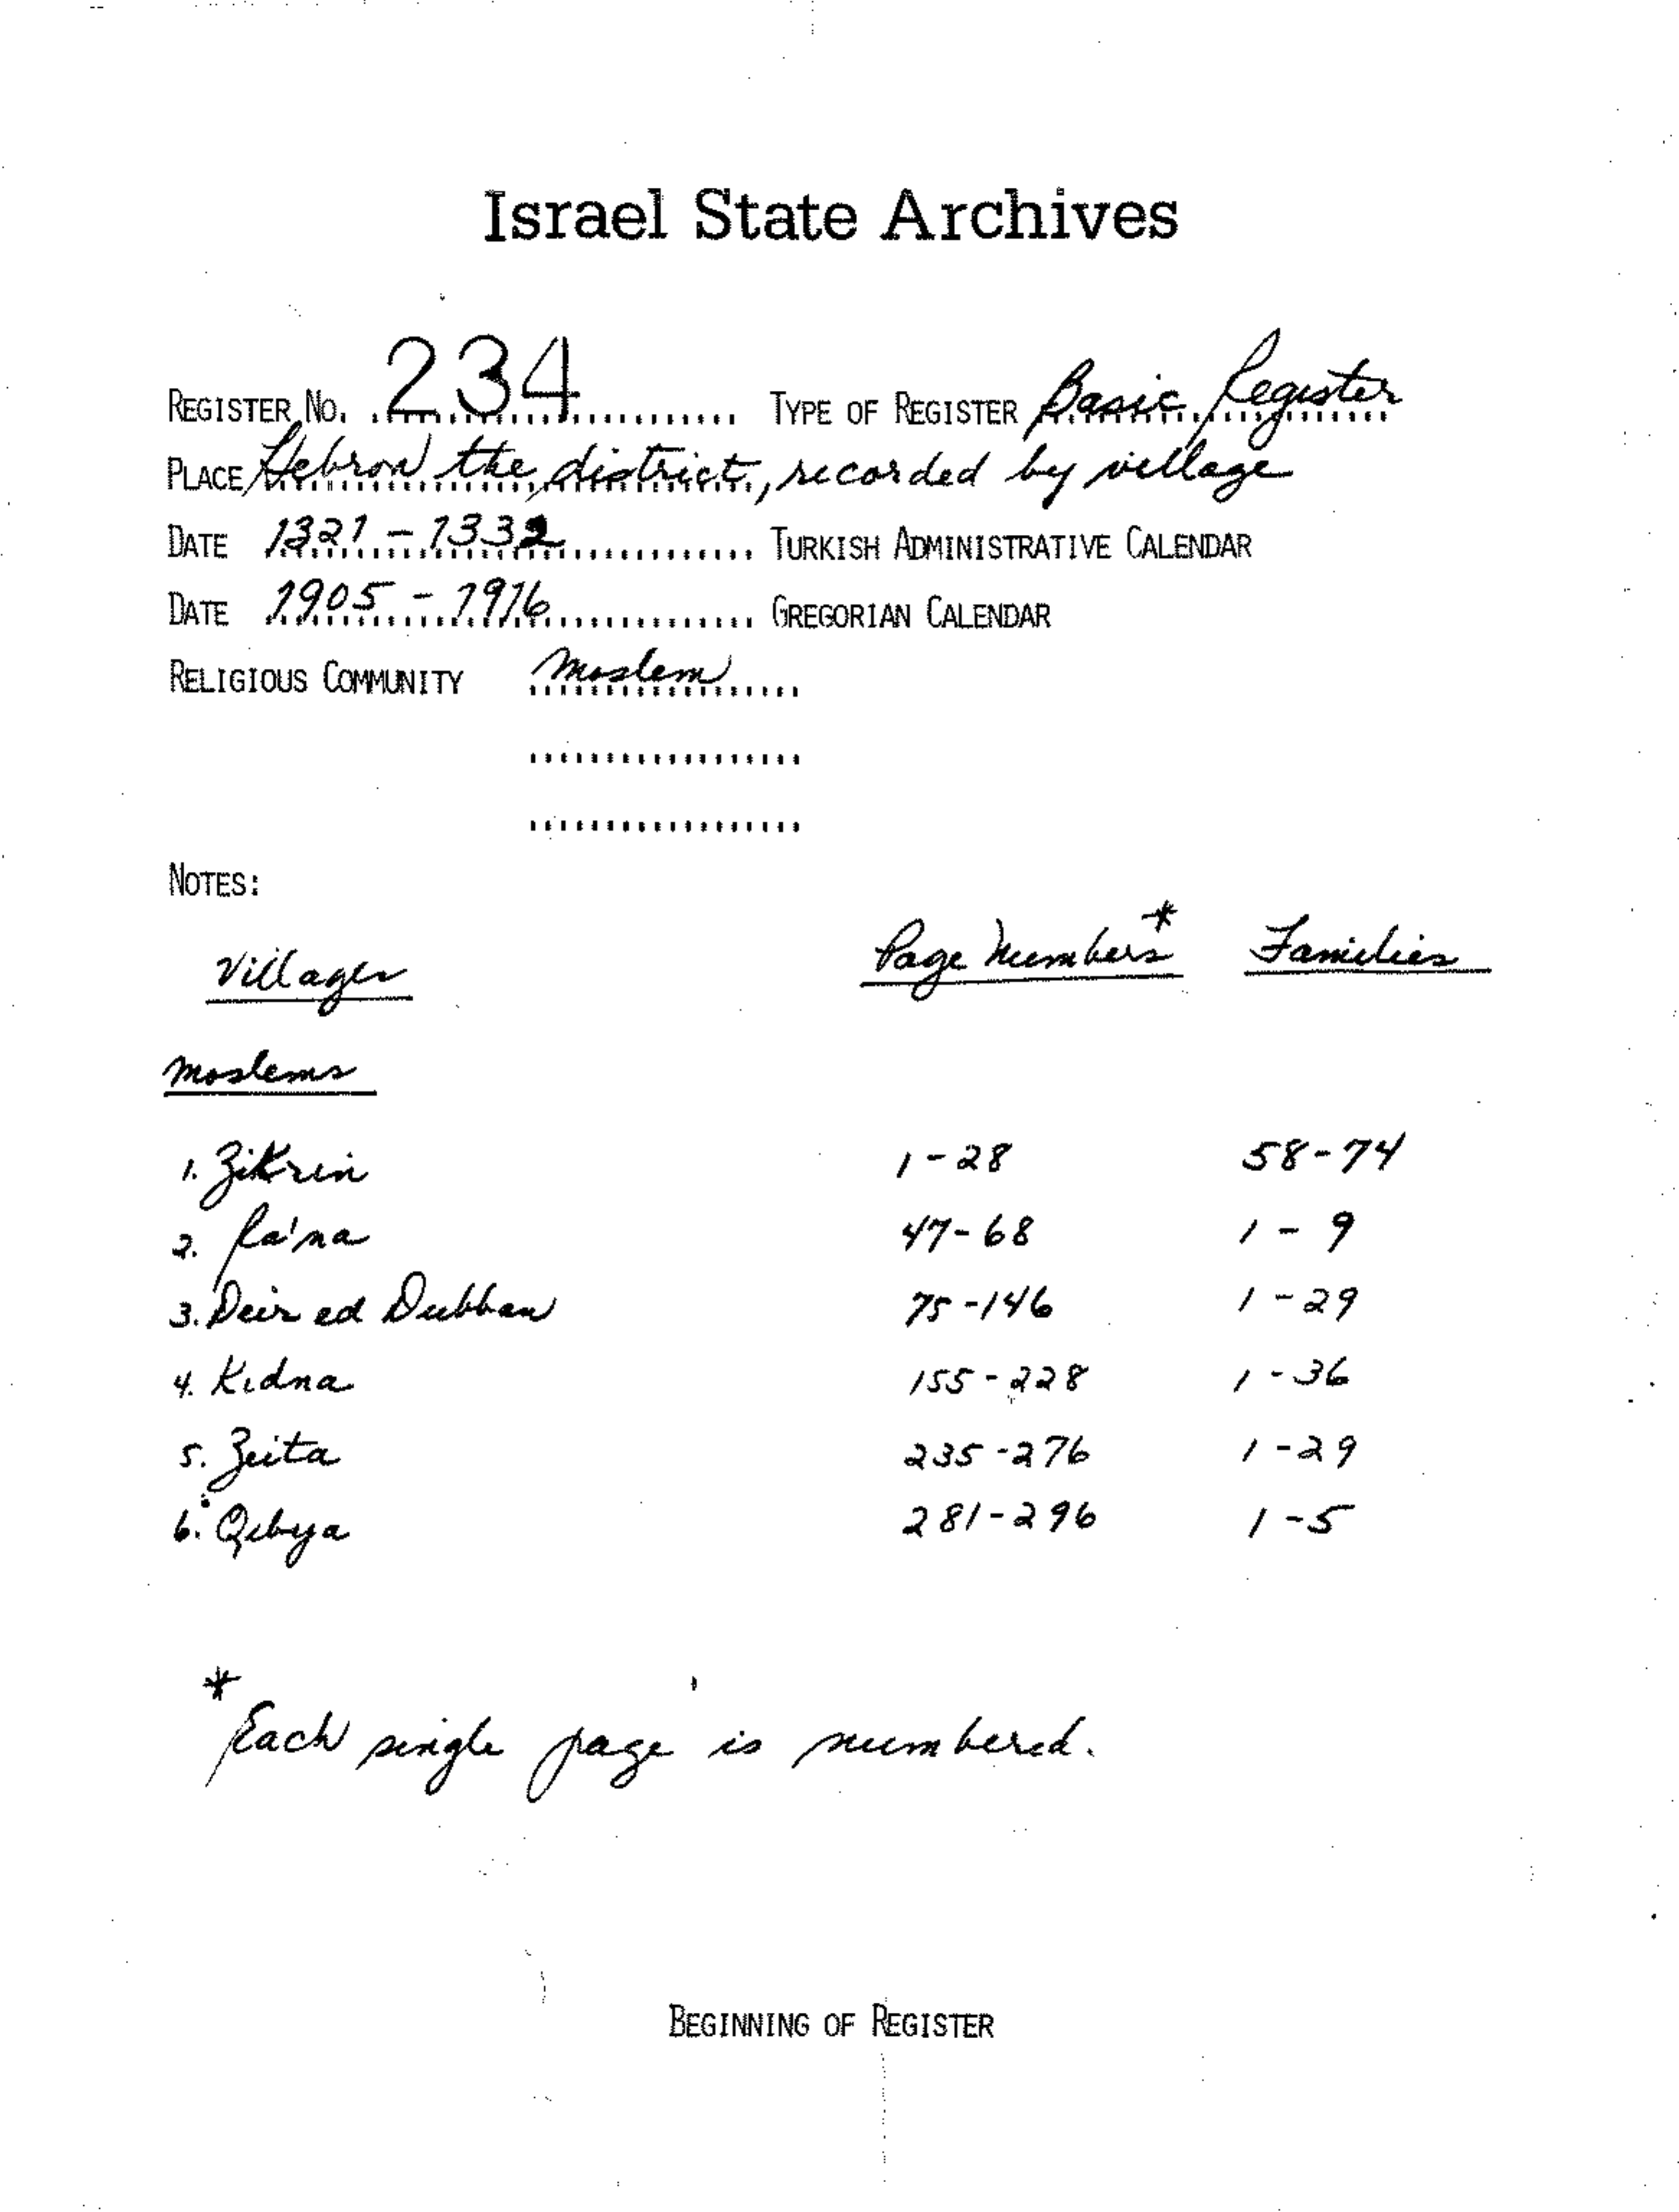 Israel State Archives
REGISTER NO. 234 TYPE OF REGISTER Basic Register
PLACE Hebron the district, recorded by village
DATE 1321 - 1332 TURKISH ADMINISTRATIVE CALENDAR
DATE 1905 - 1916 GREGORIAN CALENDAR
RELIGIOUS COMMUNITY Moslem
NOTES:
Villages Page Numbers* Families
Moslems
1. Zikrin 1-28 58-74
2. Ra'na 47-68 1-9
3. Deir ed Dubban 75-146 1-29
4. Kidna 155-228 1-36
5. Zeita 235-276 1-29
6. Qebya 281-296 1-5
* Each single page is numbered.
BEGINNING OF REGISTER